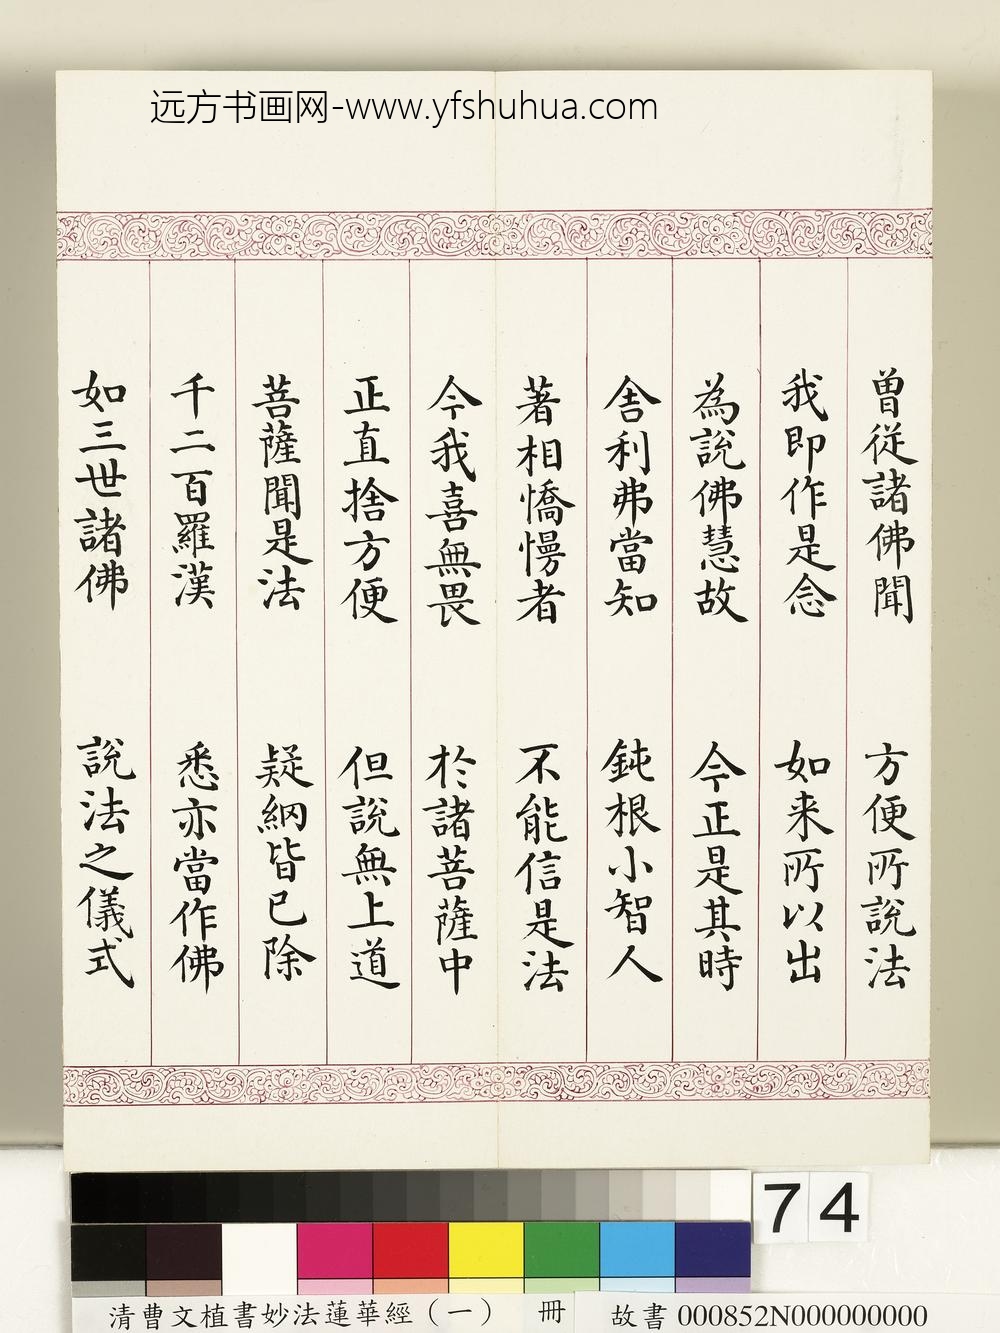 远方书画网-www.yfshuhua.com
曾從諸佛聞　方便所說法
我即作是念　如来所以出
為說佛慧故　今正是其時
舍利弗當知　鈍根小智人
著相憍慢者　不能信是法
今我喜無畏　於諸菩薩中
正直捨方便　但說無上道
菩薩聞是法　疑網皆已除
千二百羅漢　悉亦當作佛
如三世諸佛　說法之儀式
74
清曹文植書妙法蓮華經（一）　冊　故書 000852N000000000